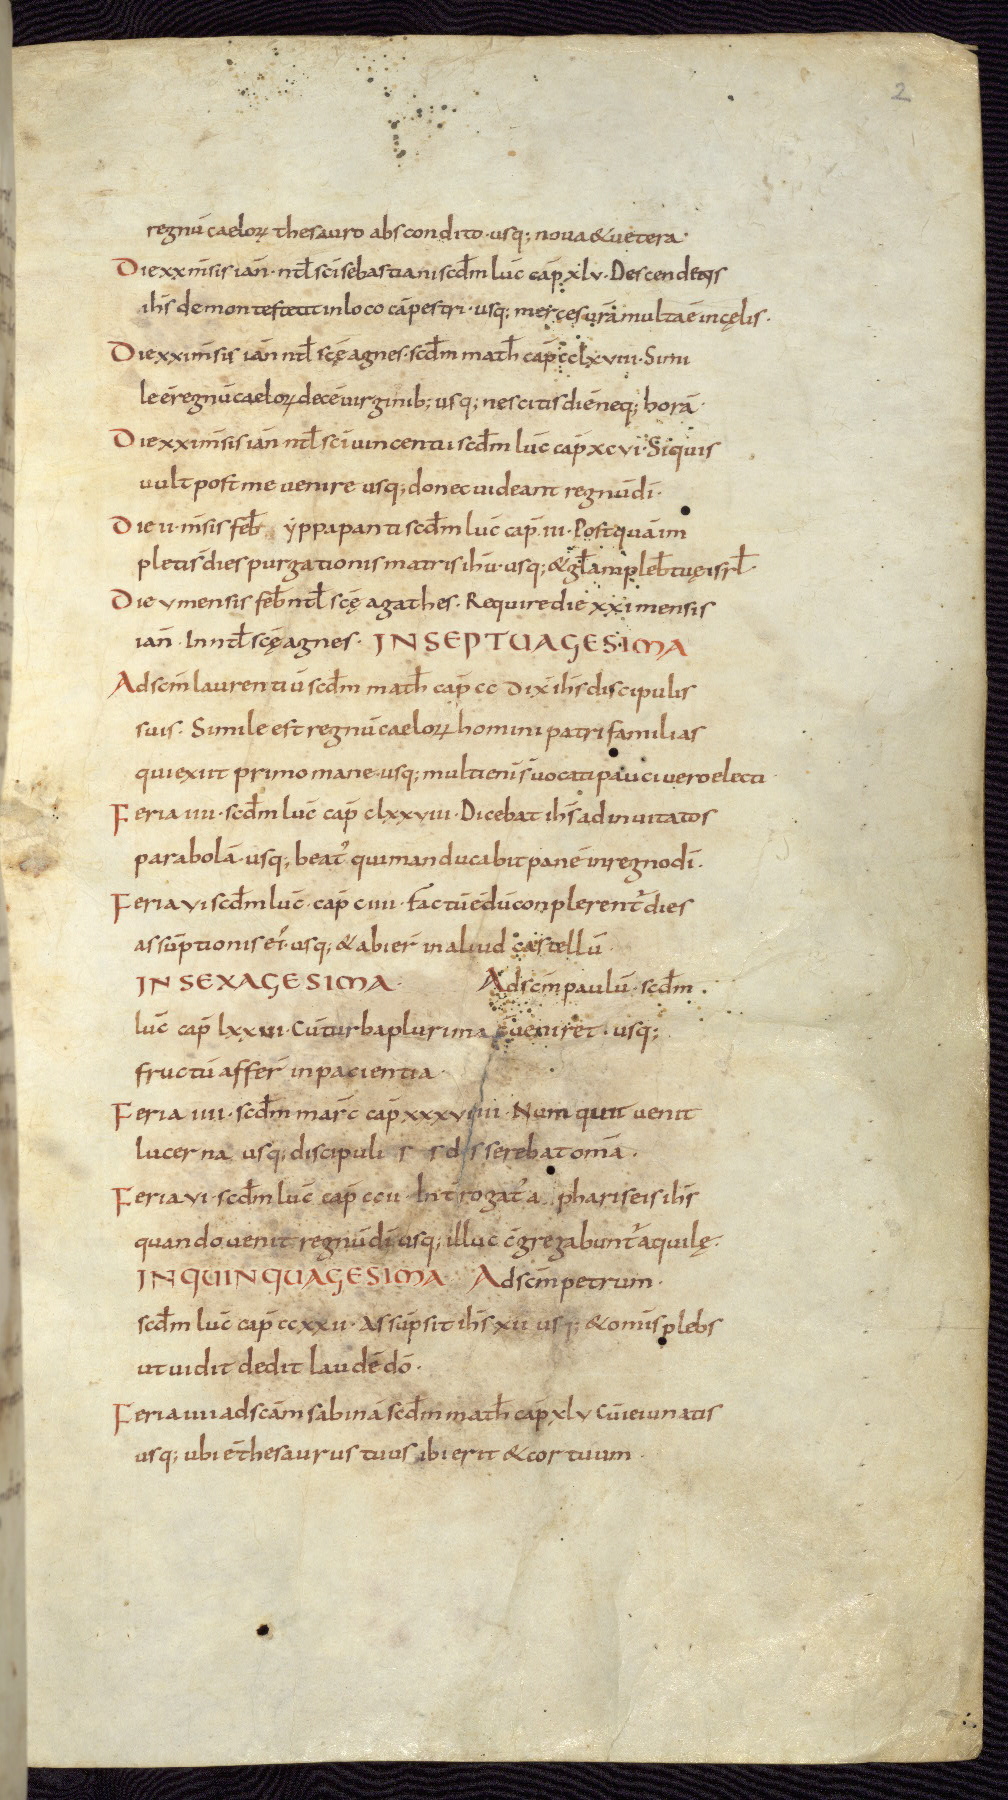 2
regnū caeloꝝ thesauro abscondito · usq; noua & uetera ·
Die xx m̄sis ian̄ · nt̄l sc̄i sebastiani scd̄m luc̄ cap̄ xlv · Descendens
ih̄s de monte stetit in loco cāpestri · usq; merces ūrā multa ē in cęlis ·
Die xxi m̄sis ian̄ nt̄l sc̄ę agnes · scd̄m math̄ cap̄ cclxviii · Simi
le ē regnū caeloꝝ decē uirginib; usq; nescitis diē neq; horā ·
Die xxii m̄sis ian̄ nt̄l sc̄i uincentii scd̄m luc̄ cap̄ xcvi · Si quis
uult post me uenire usq; donec uideant regnū dī ·
Die ii · m̄sis feb̄ yppapanti scd̄m luc̄ cap̄ iii · Postquā im
pleti s̄ dies purgationis matris ihū · usq; & gl̄am pleb̄ tuę isrl̄ ·
Die v mensis feb̄ nt̄l sc̄ę agathes · Require die xxi mensis
ian̄ · In nt̄l sc̄ę agnes · IN SEPTUAGESIMA
Ad sc̄m laurentiū scd̄m math̄ cap̄ cc Dix̄ ih̄s discipulis
suis · Simile est regnū caeloꝝ homini patri familias
qui exiit primo mane · usq; multi enī s̄ uocati pauci uero electi ·
Feria iiii · scd̄m luc̄ cap̄ clxxviii · Dicebat ih̄s ad inuitatos
parabolā · usq; beat᷒ qui manducabit panē in regno dī ·
Feria vi scd̄m luc̄ · cap̄ ciiii · Factū ē dū conplerent᷒ dies
assūptionis ei᷒ · usq; & abier̄ in aliud castellū ·
IN SEXAGESIMA · Ad sc̄m paulū · scd̄m ·
luc̄ cap̄ lxxvi · Cū turba plurima c̄ueniret · usq;
fructū affer̄ in pacientia ·
Feria iiii · scd̄m marc̄ cap̄ xxxviiii · Numquit uenit
lucerna usq; discipulis s disserebat om̄a ·
Feria vi · scd̄m luc̄ cap̄ ccii · Int̄rogat᷒ a phariseis ih̄s
quando uenit regnū dī usq; illuc c̄gregabunt᷒ aquilę ·
IN QUINQUAGESIMA · Ad sc̄m petrum ·
scd̄m luc̄ cap̄ ccxxii · Assūpsit ih̄s xii usq; & omīs plebs
ut uidit dedit laudē dō ·
Feria iiii ad sc̄am sabinā scd̄m math̄ cap̄ xlv Cū ieiunatis
usq; ubi ē thesaurus tuus ibi erit & cor tuum ·